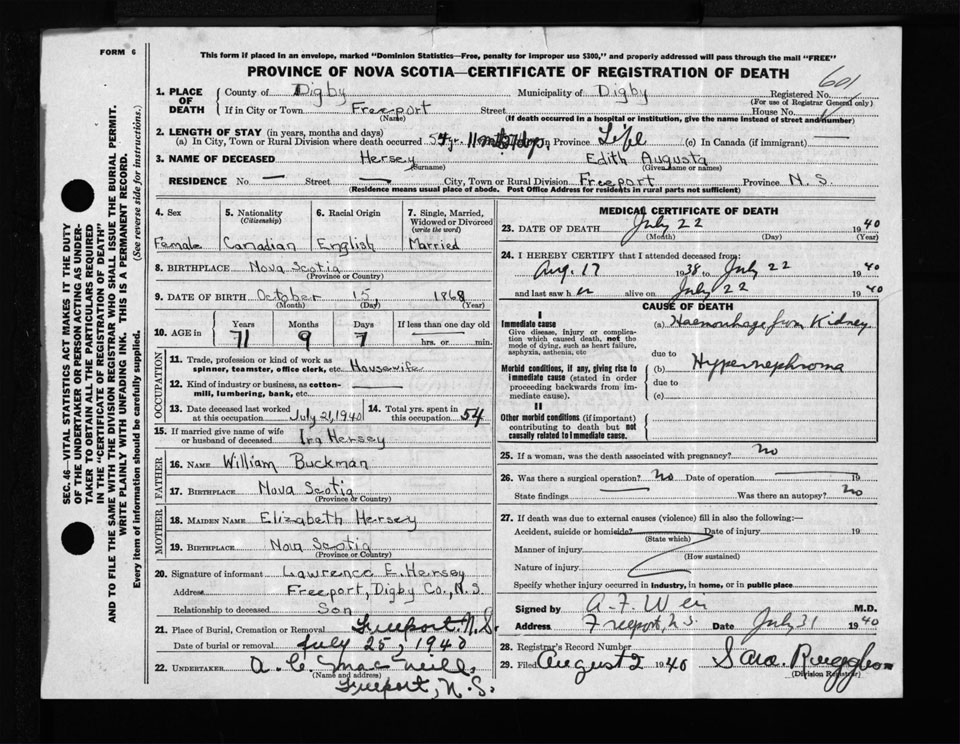 FORM 6
This form if placed in an envelope, marked "Dominion Statistics—Free, penalty for improper use $300," and properly addressed will pass through the mail "FREE"
PROVINCE OF NOVA SCOTIA—CERTIFICATE OF REGISTRATION OF DEATH
601
1. PLACE OF DEATH
County of Digby Municipality of Digby Registered No.
(For use of Registrar General only)
If in City or Town Freeport Street House No.
(Name) (If death occurred in a hospital or institution, give the name instead of street and number)
2. LENGTH OF STAY (in years, months and days)
(a) In City, Town or Rural Division where death occurred 54 yr. 11 mths in Province Life (c) In Canada (if immigrant)
3. NAME OF DECEASED Hersey Edith Augusta
(Surname) (Given name or names)
RESIDENCE No. — Street — City, Town or Rural Division Freeport Province N.S.
(Residence means usual place of abode. Post Office Address for residents in rural parts not sufficient)
4. Sex Female
5. Nationality (Citizenship) Canadian
6. Racial Origin English
7. Single, Married, Widowed or Divorced (write the word) Married
8. BIRTHPLACE Nova Scotia
(Province or Country)
9. DATE OF BIRTH October 15 1868
(Month) (Day) (Year)
10. AGE in Years Months Days If less than one day old
71 9 7 hrs. or min.
OCCUPATION
11. Trade, profession or kind of work as spinner, teamster, office clerk, etc. Housewife
12. Kind of industry or business, as cotton-mill, lumbering, bank, etc. —
13. Date deceased last worked at this occupation July 21, 1940
14. Total yrs. spent in this occupation 54
15. If married give name of wife or husband of deceased Ira Hersey
FATHER
16. NAME William Buckman
17. BIRTHPLACE Nova Scotia
(Province or Country)
MOTHER
18. MAIDEN NAME Elizabeth Hersey
19. BIRTHPLACE Nova Scotia
(Province or Country)
20. Signature of informant Lawrence E. Hersey
Address Freeport, Digby Co., N.S.
Relationship to deceased Son
21. Place of Burial, Cremation or Removal Freeport. N.S.
Date of burial or removal July 25, 1940
22. UNDERTAKER A. C. MacNeill,
(Name and address)
Freeport, N.S.
MEDICAL CERTIFICATE OF DEATH
23. DATE OF DEATH July 22 1940
(Month) (Day) (Year)
24. I HEREBY CERTIFY that I attended deceased from:
Aug. 17 1938 to July 22 1940
and last saw her alive on July 22 1940
CAUSE OF DEATH
I
Immediate cause
Give disease, injury or complication which caused death, not the mode of dying, such as heart failure, asphyxia, asthenia, etc
(a) Haemorrhage from Kidney
due to
Morbid conditions, if any, giving rise to immediate cause (stated in order proceeding backwards from immediate cause).
(b) Hypernephroma
due to
(c)
II
Other morbid conditions (if important) contributing to death but not causally related to immediate cause.
25. If a woman, was the death associated with pregnancy? no
26. Was there a surgical operation? No Date of operation 19
State findings — Was there an autopsy? No
27. If death was due to external causes (violence) fill in also the following:—
Accident, suicide or homicide? Date of injury 19
(State which)
Manner of injury
(How sustained)
Nature of injury
Specify whether injury occurred in industry, in home, or in public place
Signed by A. F. Weir M.D.
Address Freeport, N.S. Date July 31 1940
28. Registrar's Record Number
29. Filed August 2 1940 Sara
(Division Registrar)
SEC. 46—VITAL STATISTICS ACT MAKES IT THE DUTY
OF THE UNDERTAKER OR PERSON ACTING AS UNDER-
TAKER TO OBTAIN ALL THE PARTICULARS REQUIRED
IN THE "CERTIFICATE OF REGISTRATION OF DEATH"
AND TO FILE THE SAME WITH THE DIVISION REGISTRAR WHO SHALL ISSUE THE BURIAL PERMIT.
WRITE PLAINLY WITH UNFADING INK. THIS IS A PERMANENT RECORD.
Every item of information should be carefully supplied. (See reverse side for instructions.)